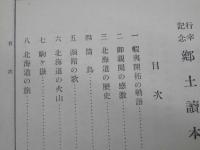 行幸
記念
郷土讀本
目次
一 蝦夷開拓の勅語
二 御親閲の感激
三 北海道の歴史
四 筒鳥
五 函館の歌
六 北海道の火山
七 駒ヶ嶽
八 北海道の旅
目次